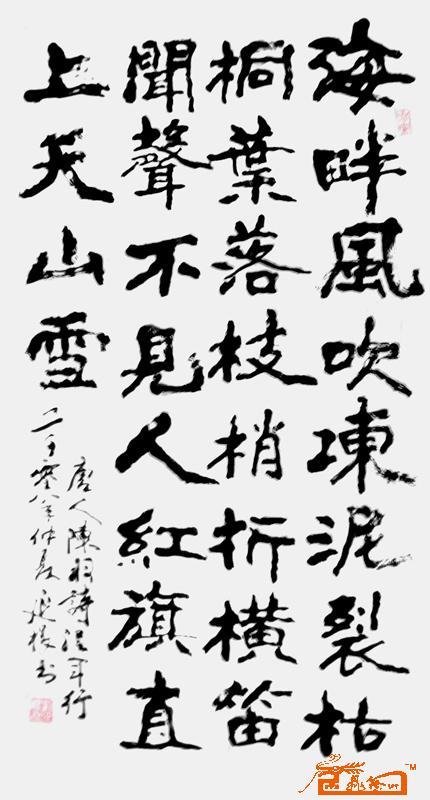 海畔風吹凍泥裂枯
桐葉落枝梢折橫笛
聞聲不見人紅旗直
上天山雪
唐人陳羽詩從軍行
二千零八年仲夏